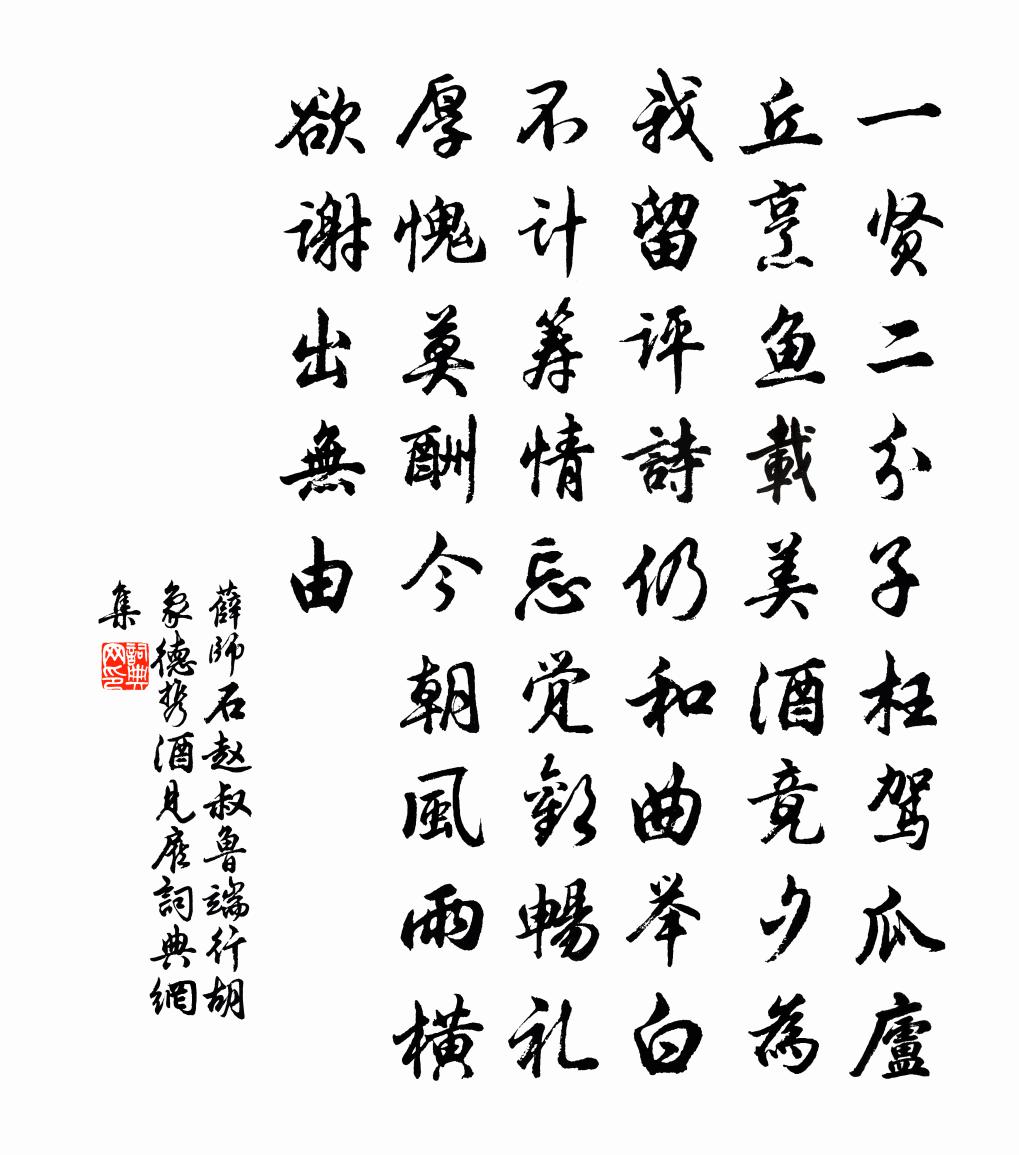 一贤二分子枉驾瓜廬
丘烹鱼載美酒竟夕為
我留评詩仍和曲举白
不计筹情忘觉歡畅礼
厚愧莫酬今朝風雨橫
欲谢出無由
薛师石赵叔鲁端行胡
象德携酒见庑詞典網
集
詞典网印